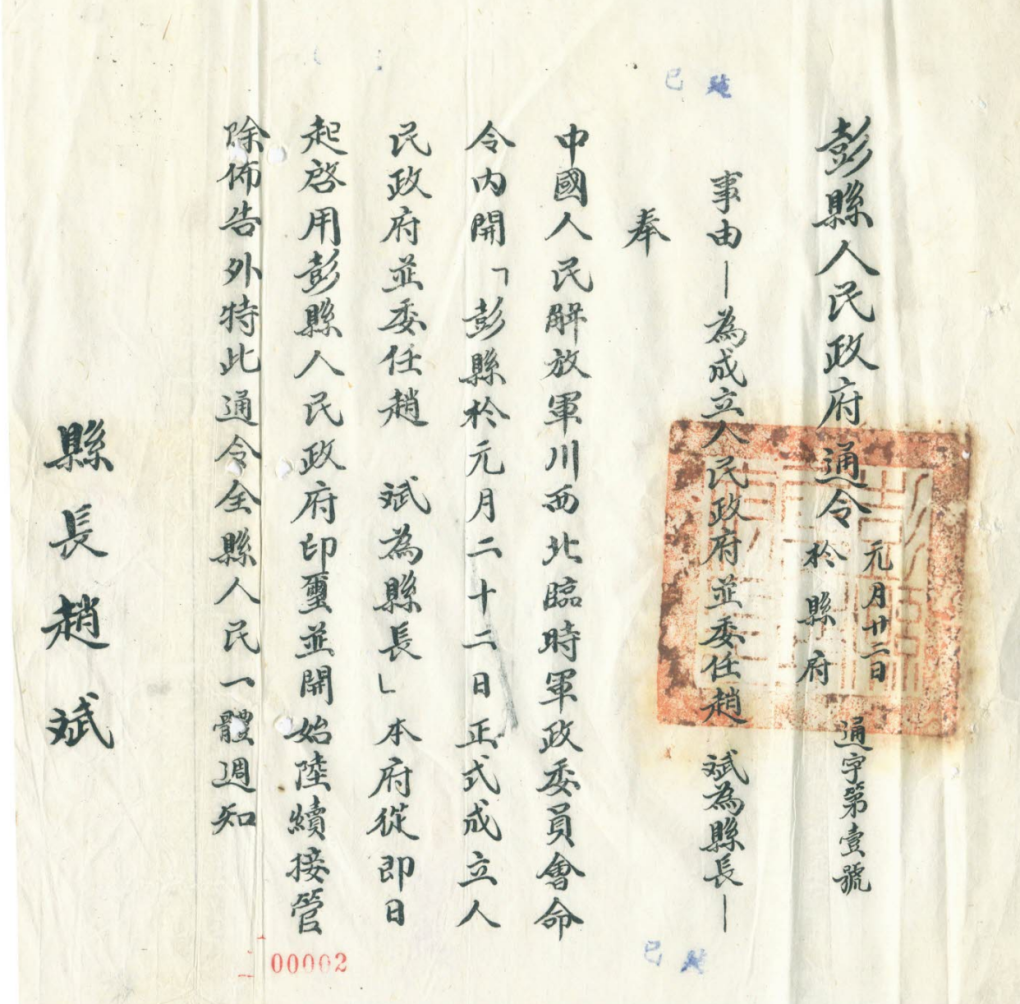 彭縣人民政府通令 元月廿二日 於縣府 通字第壹號
事由—為成立人民政府並委任趙 斌為縣長—
奉
中國人民解放軍川西北臨時軍政委員會命
令内開「彭縣於元月二十二日正式成立人
民政府並委任趙 斌為縣長」本府從即日
起啓用彭縣人民政府印璽並開始陸續接管
除佈告外特此通令全縣人民一體週知
縣長趙斌
00002